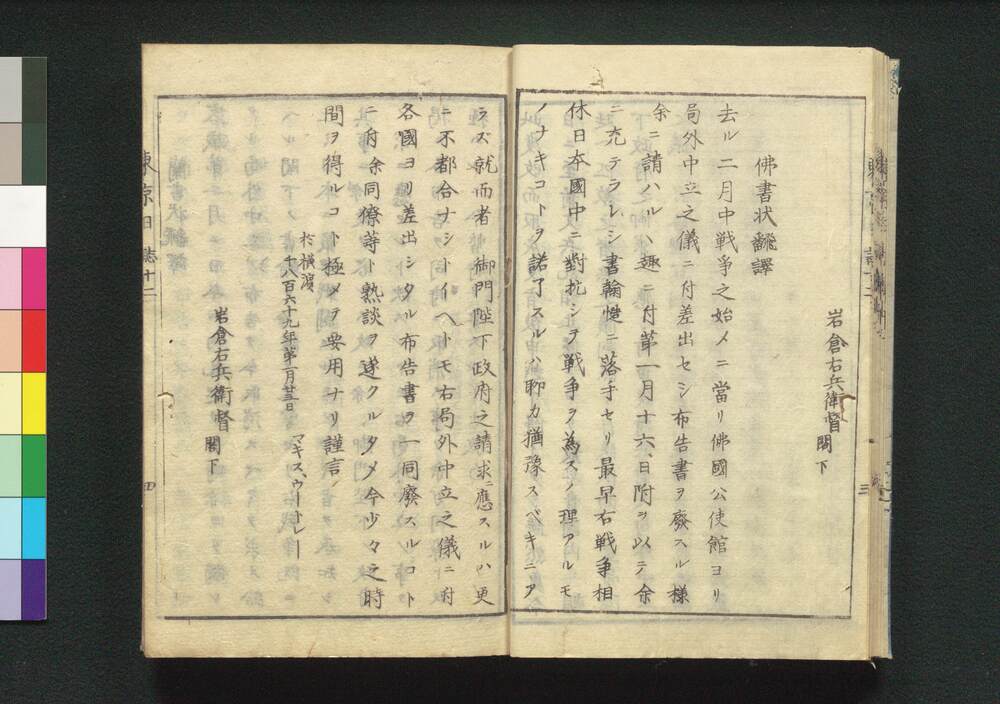 岩倉右兵衛督
閣下
佛書状飜譯
去ル二月中戦争之始メニ當リ佛國公使館ヨリ
局外中立之儀ニ付差出セシ布告書ヲ廃スル様
余ニ請ハルヽ趣ニ付第一月十六日附ヲ以テ余
ニ充テラレシ書翰慥ニ落手セリ最早右戦争相
休日本國中ニ對抗シテ戦争ヲ為スノ理アルモ
ノナキコトヲ諾了スルハ聊カ猶豫スベキニア
三
ラズ就而者御門陛下政府之請求ニ應スルハ更
ニ不都合ナシトイヘトモ右局外中立之儀ニ付
各國ヨリ差出シタル布告書ヲ一同廃スルコト
ニ付余同僚等ト熟談ヲ遂クルタメ今少々之時
間ヲ得ルコト極メテ要用ナリ謹言
於横濱
千八百六十九年第一月廿三日
マキス、ウートレー
岩倉右兵衛督
閣下
東京日誌十二
四